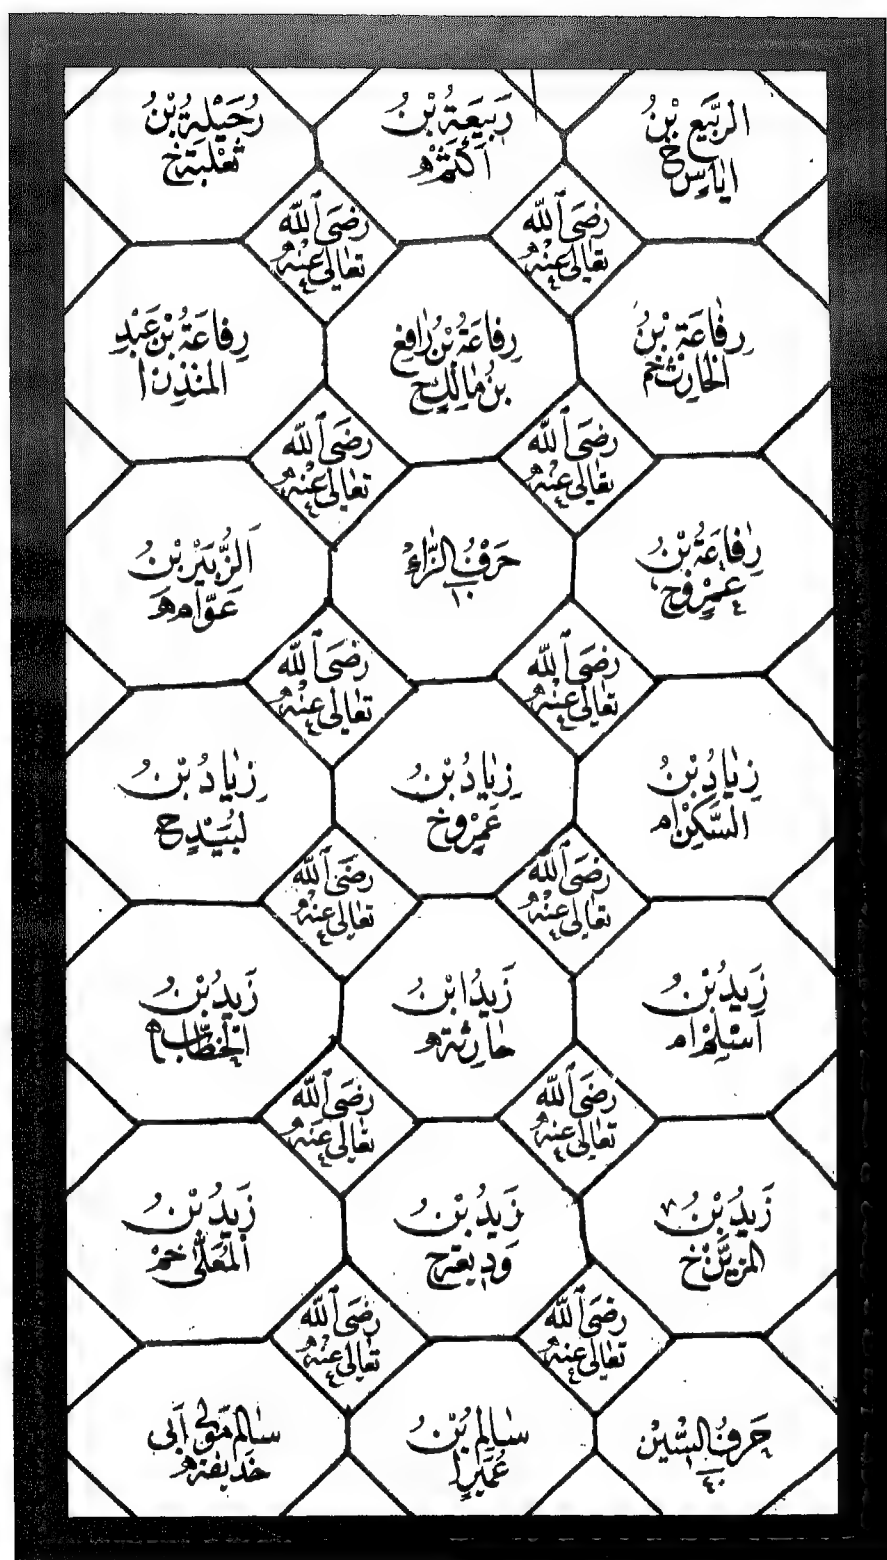 الرَّبِيع بْنُ
اِيَاسْ خ
رَبِيعَةُ بْنُ
اَكْثَمْ ه
رُحَيْلَةُ بْنُ
ثَعْلَبَةَ خ
رَضِىَ ٱللّٰه
تَعَالىٰ عَنْهُ
رَضِىَ ٱللّٰه
تَعَالىٰ عَنْهُ
رِفَاعَةُ بْنُ
الْحَارِث خم
رِفَاعَةُ بْنُ رَافِعِ
بْنُ مَالِكٍ ح
رِفَاعَةُ بْنُ عَبْدِ
الْمُنْذِنْ ا
رَضِىَ ٱللّٰه
تَعَالىٰ عَنْهُ
رَضِىَ ٱللّٰه
تَعَالىٰ عَنْهُ
رِفَاعَةُ بْنُ
عَمْرٍو خ
حَرْفُ الزَّاءِ
١٠
اَلزُّبَيْرُ بْنُ
عَوَّام ه
رَضِىَ ٱللّٰه
تَعَالىٰ عَنْهُ
رَضِىَ ٱللّٰه
تَعَالىٰ عَنْهُ
زِيَادُ بْنُ
السَّكَنْ ام
زِيَادُ بْنُ
عَمْرٍو خ
زِيَادُ بْنُ
لَبِيْدٍ ح
رَضِىَ ٱللّٰه
تَعَالىٰ عَنْهُ
رَضِىَ ٱللّٰه
تَعَالىٰ عَنْهُ
زَيدُ بْنُ
اَسْلَمْ ام
زَيدُ ابْنُ
حَارِثَةَ ه
زَيدُ بْنُ
الْخَطَّاب ه
رَضِىَ ٱللّٰه
تَعَالىٰ عَنْهُ
رَضِىَ ٱللّٰه
تَعَالىٰ عَنْهُ
زَيدُ بْنُ
الْمُزَيَّنْ خ
زَيدُ بْنُ
وَدِيعَةَ ح
زَيدُ بْنُ
الْمُعَلّٰى خم
رَضِىَ ٱللّٰه
تَعَالىٰ عَنْهُ
رَضِىَ ٱللّٰه
تَعَالىٰ عَنْهُ
حَرفُ السّيْن
٤٠
سَالِم بْنُ
عُمَيْر ا
سَالِم مَّوْلٰى اَبِى
حُذَيفَة ه